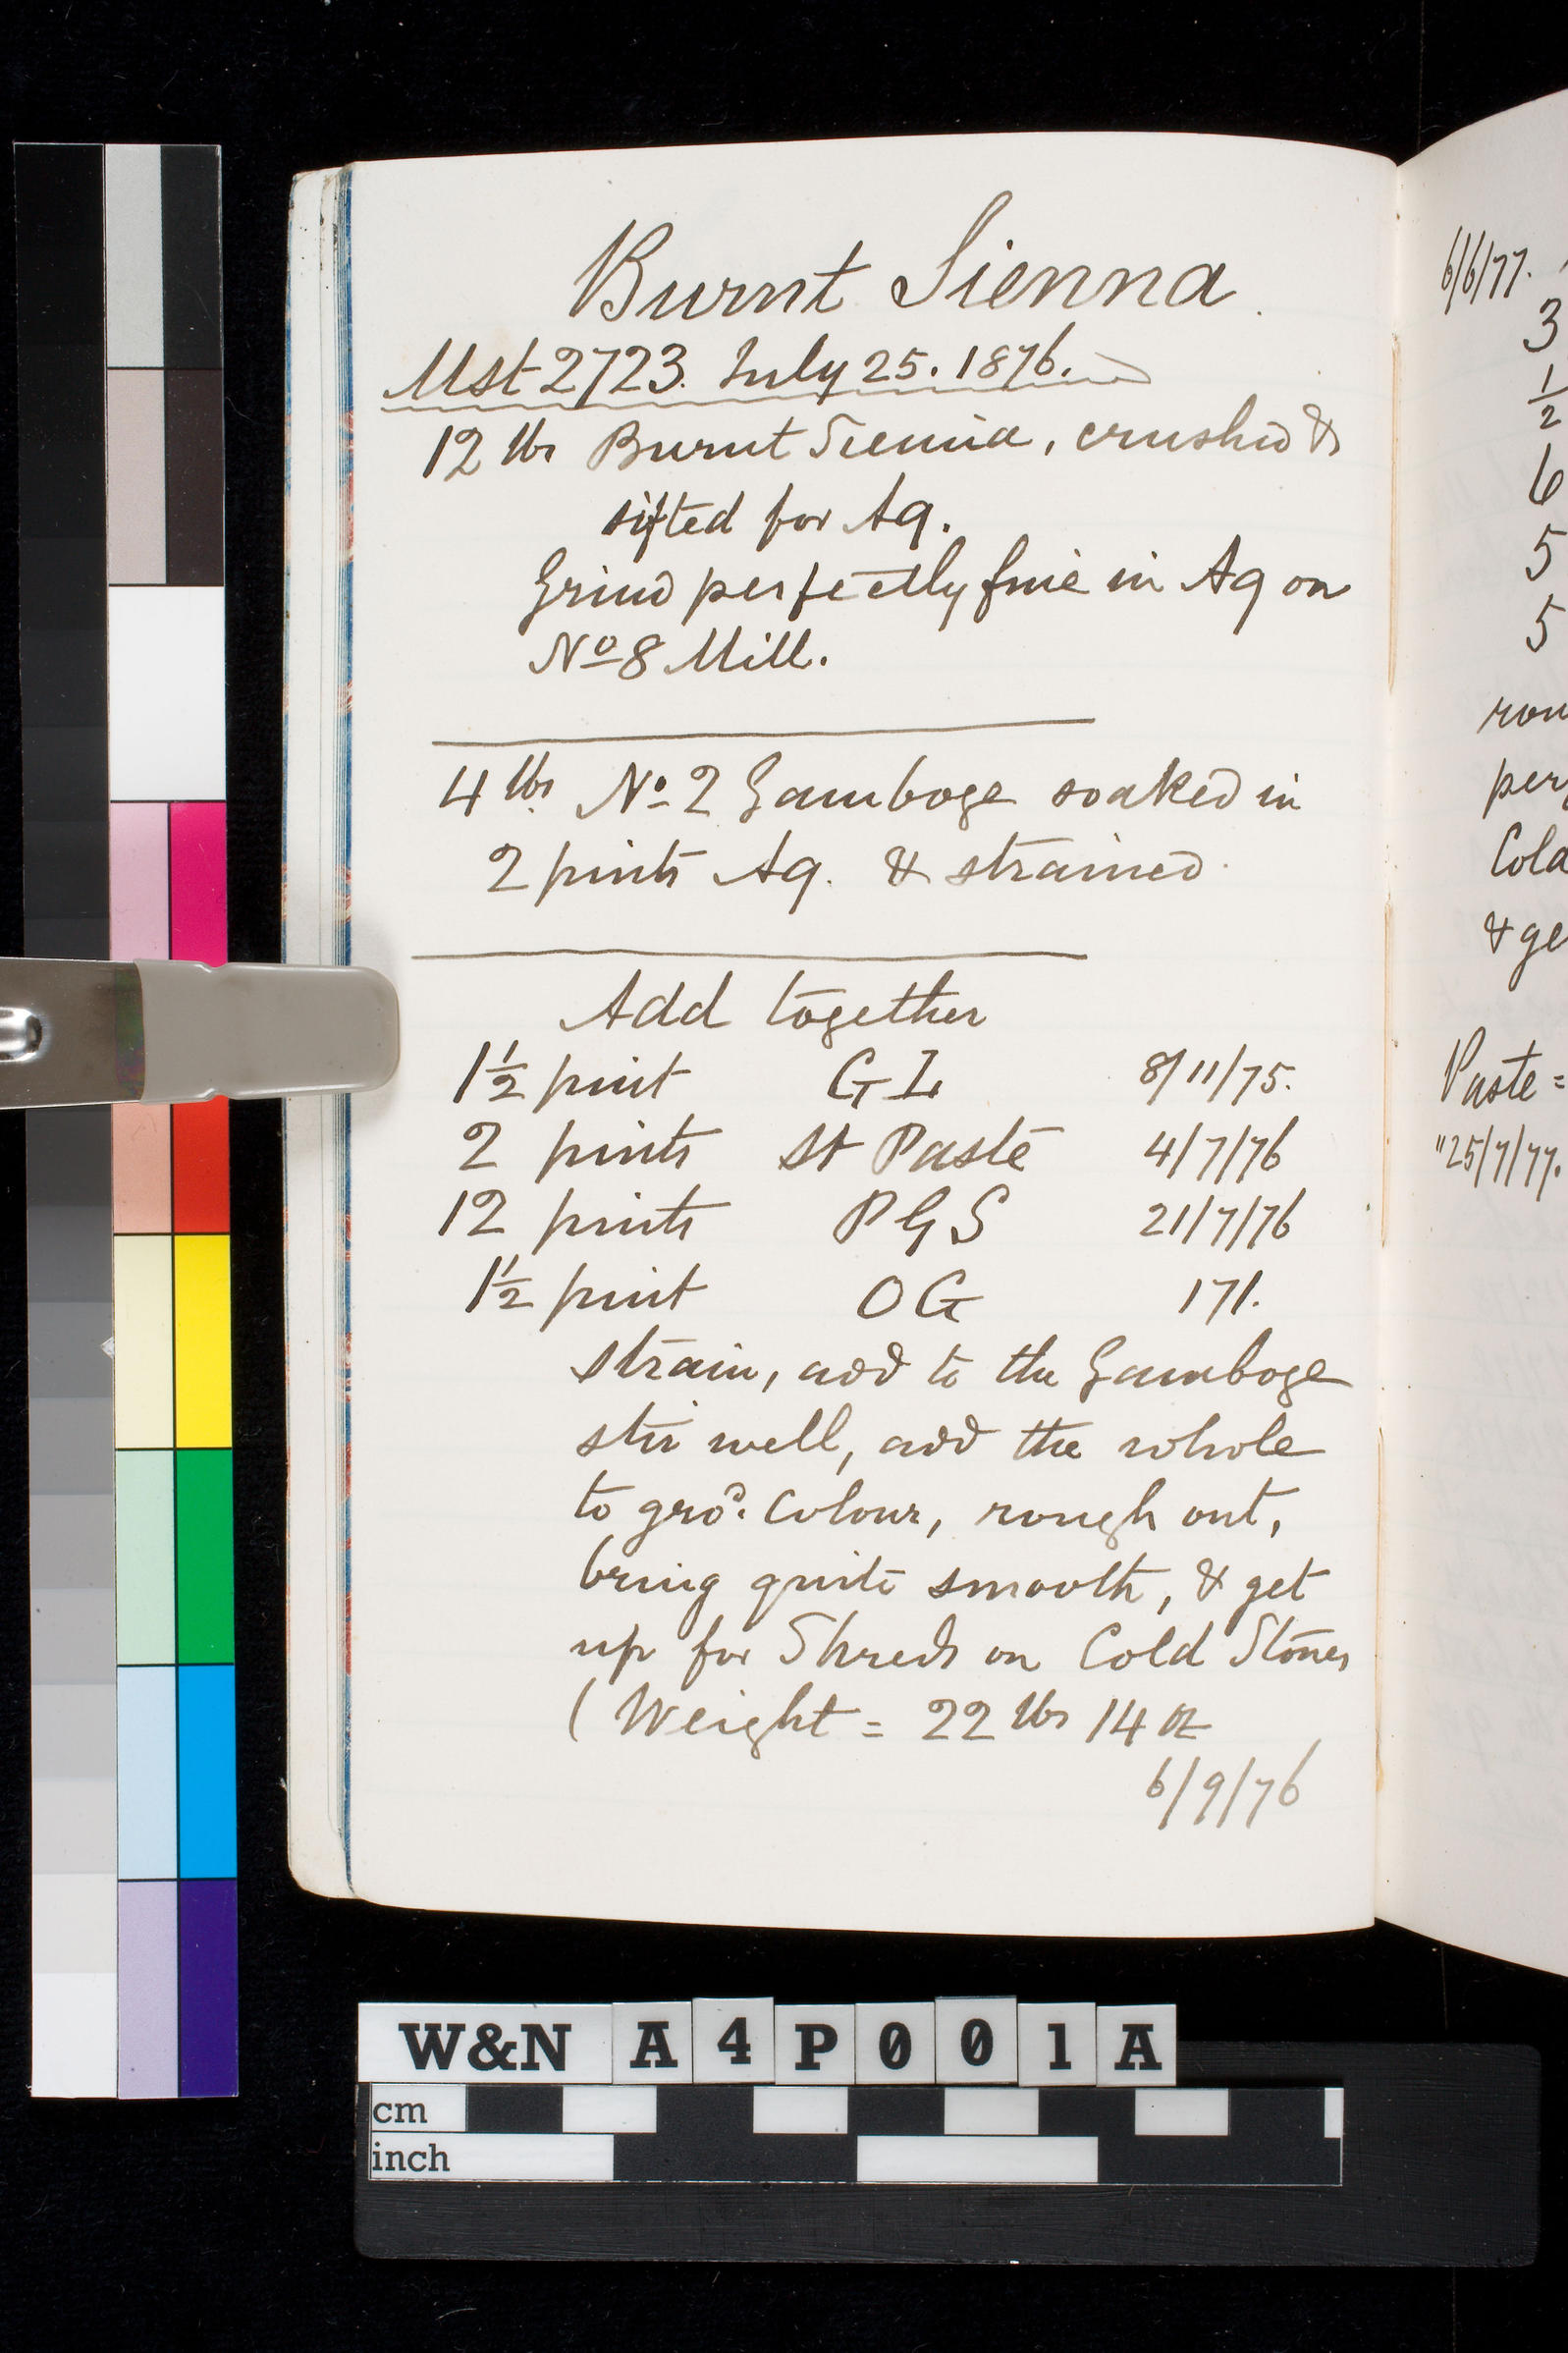 Burnt Sienna.
Mst 2723. July 25. 1876.
12 lbs Burnt Sienna, crushed &
sifted for Aq.
Grind perfectly fine in Aq on
No 8 Mill.
4 lbs No 2 Gamboge soaked in
2 pints Aq. & strained.
Add together
1½ pint GL 8/11/75.
2 pints St Paste 4/7/76
12 pints PGS 21/7/76
1½ pint OG 171.
strain, add to the Gamboge
stir well, add the whole
to grod. Colour, rough out,
bring quite smooth, & get
up for Shreds on Cold Stones
(Weight = 22 lbs 14 oz
6/9/76
6/6/77.
3
½
6
5
5
rou
per
Cold
& ge
Paste =
"25/7/77.
W&N A4P001A
cm
inch